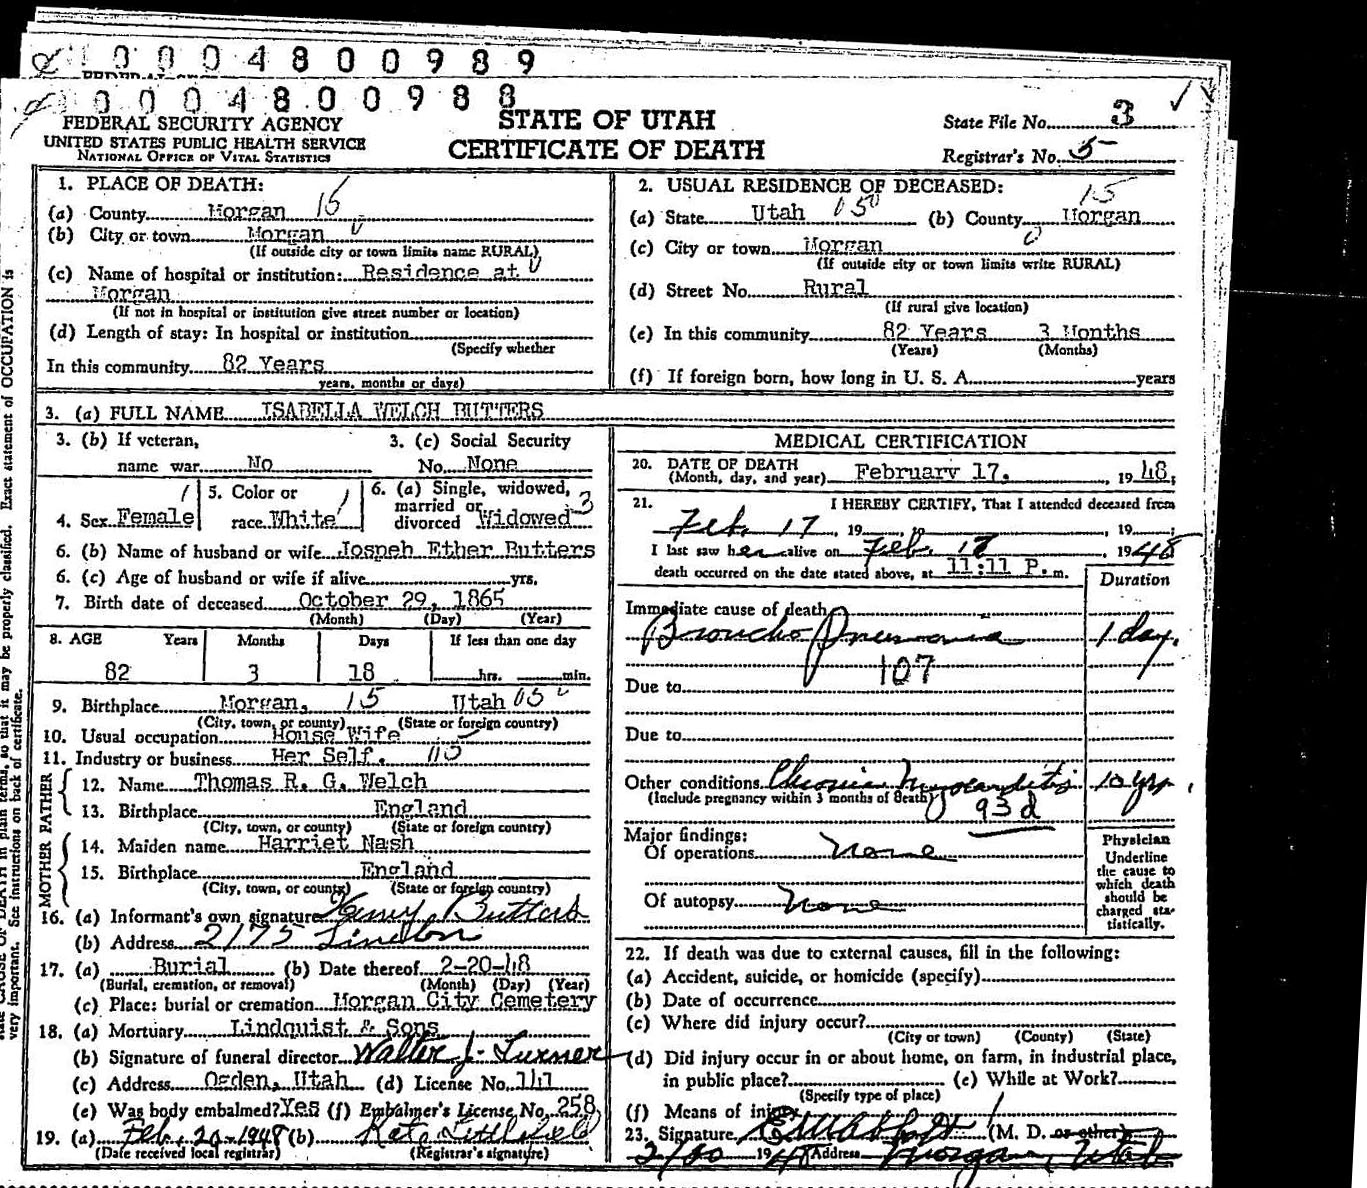 0 0 0 4 8 0 0 9 8 9
0 0 0 4 8 0 0 9 8 8
FEDERAL SECURITY AGENCY
UNITED STATES PUBLIC HEALTH SERVICE
NATIONAL OFFICE OF VITAL STATISTICS
STATE OF UTAH
CERTIFICATE OF DEATH
State File No. 3
Registrar's No. 5
1. PLACE OF DEATH:
(a) County Morgan 15
(b) City or town Morgan
(If outside city or town limits name RURAL)
(c) Name of hospital or institution: Residence at
Morgan
(If not in hospital or institution give street number or location)
(d) Length of stay: In hospital or institution
(Specify whether
In this community 82 Years
years, months or days)
2. USUAL RESIDENCE OF DECEASED:
15
(a) State Utah 050 (b) County Morgan
(c) City or town Morgan
(If outside city or town limits write RURAL)
(d) Street No. Rural
(If rural give location)
(e) In this community 82 Years 3 Months
(Years) (Months)
(f) If foreign born, how long in U. S. A. years
3. (a) FULL NAME ISABELLA WELCH BUTTERS
3. (b) If veteran,
name war No
3. (c) Social Security
No. None
4. Sex Female 1
5. Color or
race White 1
6. (a) Single, widowed,
married or
divorced Widowed 3
6. (b) Name of husband or wife Jospeh Ether Butters
6. (c) Age of husband or wife if alive yrs.
7. Birth date of deceased October 29, 1865
(Month) (Day) (Year)
8. AGE Years Months Days If less than one day
82 3 18 hrs. min.
9. Birthplace Morgan, 15 Utah 050
(City, town, or county) (State or foreign country)
10. Usual occupation House Wife
11. Industry or business Her Self.
FATHER
12. Name Thomas R. G. Welch
13. Birthplace England
(City, town, or county) (State or foreign country)
MOTHER
14. Maiden name Harriet Nash
15. Birthplace England
(City, town, or county) (State or foreign country)
16. (a) Informant's own signature Butters
(b) Address 2175 Lincoln
17. (a) Burial (b) Date thereof 2-20-48
(Burial, cremation, or removal) (Month) (Day) (Year)
(c) Place: burial or cremation Morgan City Cemetery
18. (a) Mortuary Lindquist & Sons
(b) Signature of funeral director Walter J. Turner
(c) Address Ogden, Utah (d) License No. 141
(e) Was body embalmed? Yes (f) Embalmer's License No. 258
19. (a) Feb. 20-1948 (b) Littlefield
(Date received local registrar) (Registrar's signature)
MEDICAL CERTIFICATION
20. DATE OF DEATH
(Month, day, and year) February 17, 1948;
21. I HEREBY CERTIFY, That I attended deceased from
Feb. 17, 19 to , 19 ;
I last saw her alive on Feb. 17, 1948
death occurred on the date stated above, at 11:11 P. m.
Duration
Immediate cause of death
Broncho Pneumonia 1 day.
107
Due to
Due to
Other conditions Chronic Myocarditis 10 yrs
(Include pregnancy within 3 months of death)
93d
Major findings:
Of operations none
Of autopsy none
Physician
Underline
the cause to
which death
should be
charged sta-
tistically.
22. If death was due to external causes, fill in the following:
(a) Accident, suicide, or homicide (specify)
(b) Date of occurrence
(c) Where did injury occur?
(City or town) (County) (State)
(d) Did injury occur in or about home, on farm, in industrial place,
in public place? (e) While at Work?
(Specify type of place)
(f) Means of injury
23. Signature (M. D. or other)
2/20 1948 Address Morgan, Utah
CAUSE OF DEATH in plain terms, so that it may be properly classified. Exact statement of OCCUPATION is
very important. See instructions on back of certificate.